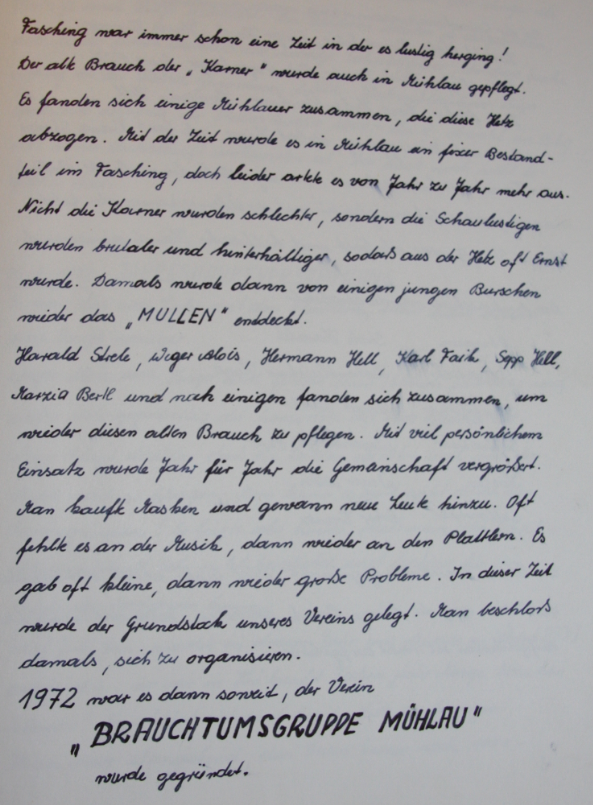 Fasching war immer schon eine Zeit in der es lustig herging!
Der alte Brauch der „Karner" wurde auch in Mühlau gepflegt.
Es fanden sich einige Mühlauer zusammen, die diese Hetz
abzogen. Mit der Zeit wurde es in Mühlau ein fixer Bestand-
teil im Fasching, doch leider artete es von Jahr zu Jahr mehr aus.
Nicht die Karner wurden schlechter, sondern die Schaulustigen
wurden brutaler und hinterhältiger, sodaß aus der Hetz oft Ernst
wurde. Damals wurde dann von einigen jungen Burschen
wieder das „MULLEN" entdeckt.
Harald Strele, Weger Alois, Hermann Hell, Karl Faik, Sepp Hell,
Bertl und noch einigen fanden sich zusammen, um
wieder diesen alten Brauch zu pflegen. Mit viel persönlichem
Einsatz wurde Jahr für Jahr die Gemeinschaft vergrößert.
Man kaufte Masken und gewann neue Leute hinzu. Oft
fehlte es an der Musik, dann wieder an den Plattlern. Es
gab oft kleine, dann wieder große Probleme. In dieser Zeit
wurde der Grundstock unseres Vereins gelegt. Man beschloß
damals, sich zu organisieren.
1972 war es dann soweit, der Verein
„BRAUCHTUMSGRUPPE MÜHLAU"
wurde gegründet.